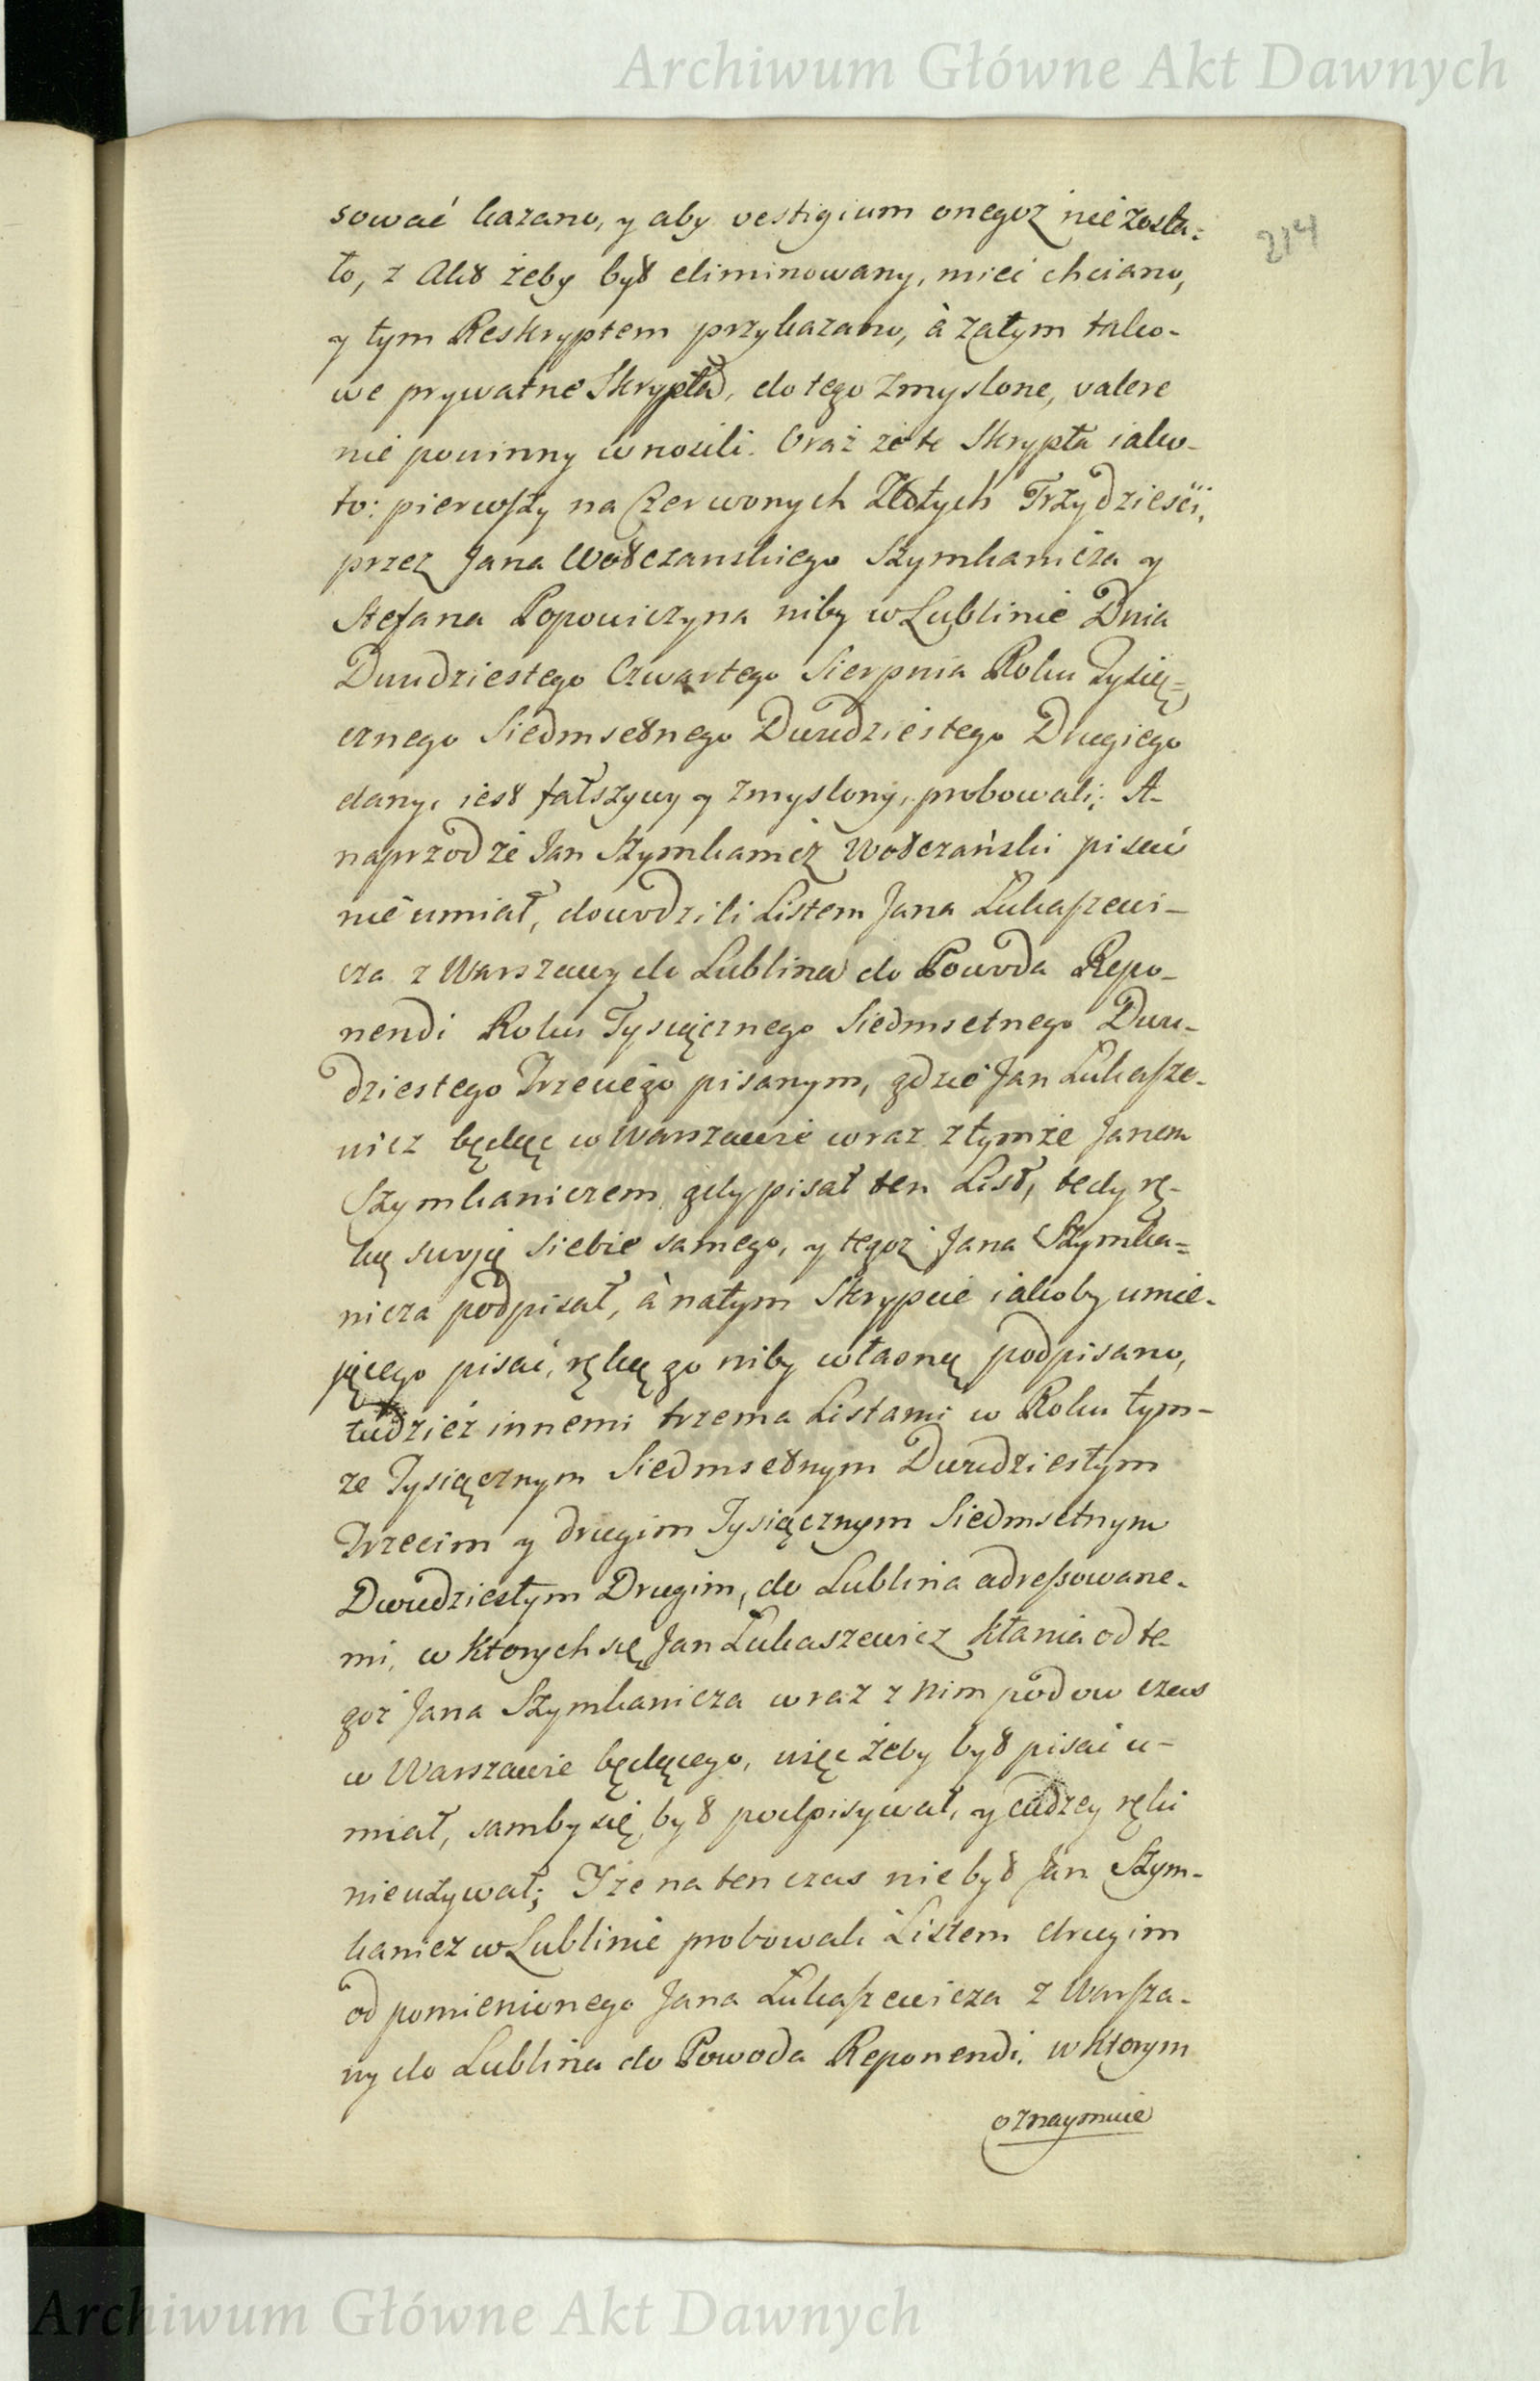 Archiwum Główne Akt Dawnych
214
sować kazano, y aby vestigium onegoż nie zosta:
ło, z Akt żeby był eliminowany, mieć chciano,
y tym Reskryptem przykazano, à zatym tako-
we prywatne Skrypta, do tego zmyslone, valere
nie powinny wnosili. Oraz że te Skrypta iako-
to: pierwszy na Czerwonych Złotych Trzydzieści,
przez Jana Wołczanskiego Szymkanicza y
Stefana Popowiczyna niby w Lublinie Dnia
Dwudziestego Czwartego Sierpnia Roku Tysią=
cznego Siedmsetnego Dwudziestego Drugiego
dany, iest fałszywy y zmyslony, probowali; A-
naprzod że Jan Szymkanicz Wołczański pisać
nie umiał, dowodzili Listem Jana Lukaszewi-
cza z Warszawy do Lublina do Powoda Repo-
nendi Roku Tysiącznego Siedmsetnego Dwu-
dziestego Trzeciego pisanym, gdzie Jan Lukasze-
wicz będąc w Warszawie wraz z tymże Janem
Szymkaniczem, gdy pisał ten List, tedy rę-
ką swoją siebie samego, y tegoż Jana Szymka=
nicza podpisał, à na tym Skrypcie iakoby umie-
jącego pisać, ręką go niby własną podpisano,
tudzież innemi trzema Listami w Roku tym-
że Tysiącznym Siedmsetnym Dwudziestym
Trzecim y drugim Tysiącznym Siedmsetnym
Dwudziestym Drugim, do Lublina adressowane-
mi, w ktorych się Jan Lukaszewicz kłania od te-
goż Jana Szymkanicza wraz z nim pod ow czas
w Warszawie będącego, więc żeby był pisać u-
miał, samby się był podpisywał, y cudzey ręki
nie używał; Y że na ten czas nie był Jan Szym-
kanicz w Lublinie probowali Listem drugim
od pomienionego Jana Lukaszewicza z Warsza-
wy do Lublina do Powoda Reponendi, w ktorym
oznaymuie
Archiwum Główne Akt Dawnych